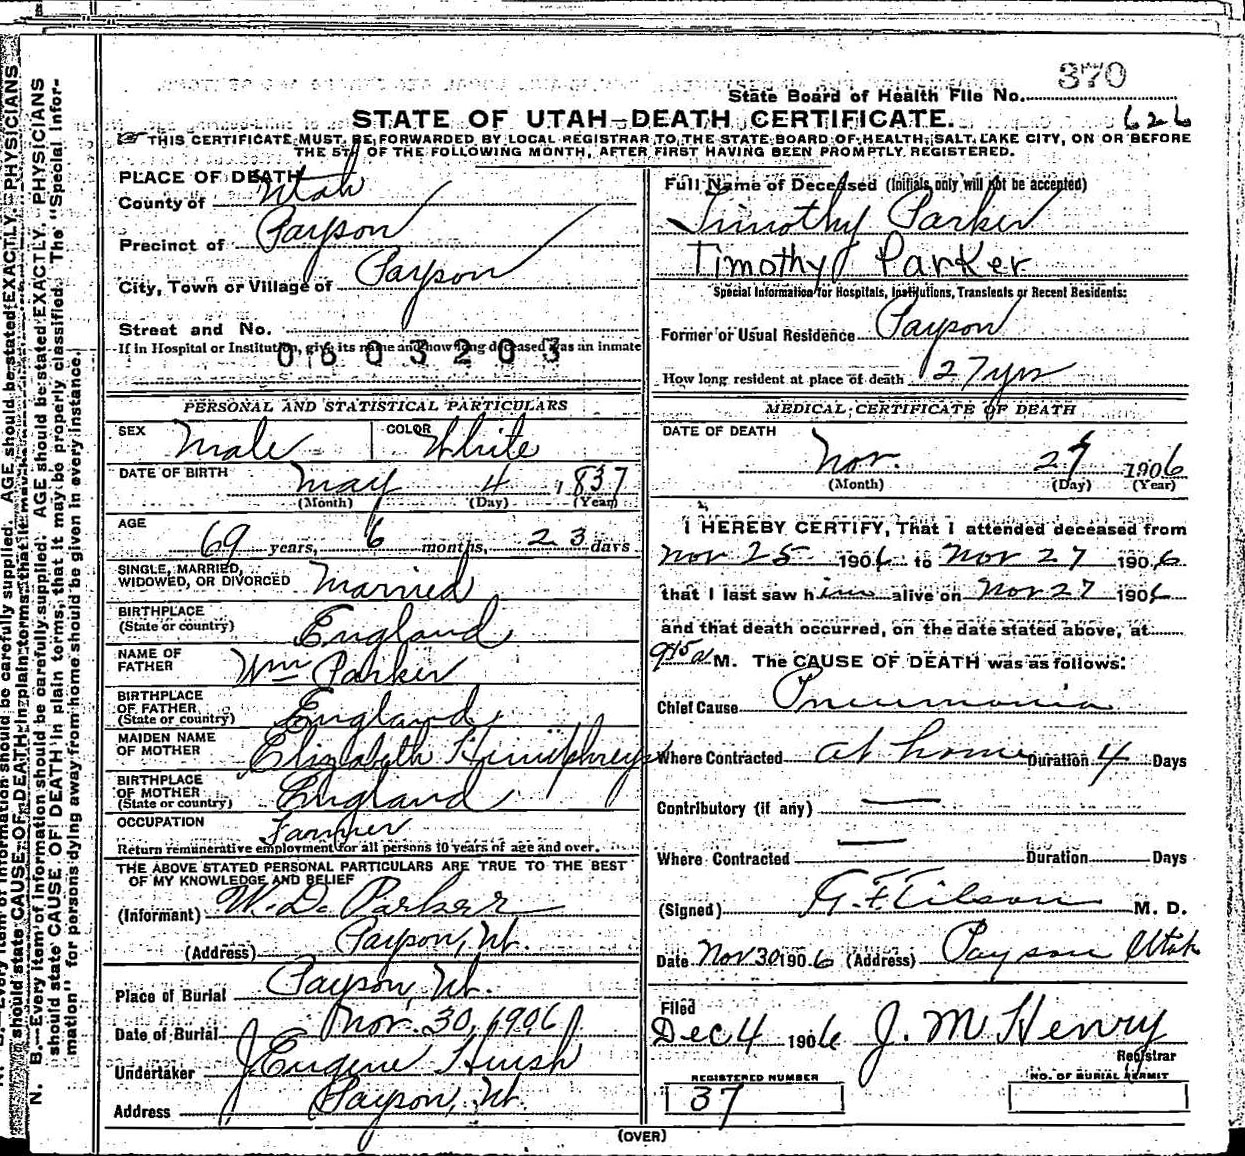 370
State Board of Health File No.
STATE OF UTAH—DEATH CERTIFICATE.
626
THIS CERTIFICATE MUST BE FORWARDED BY LOCAL REGISTRAR TO THE STATE BOARD OF HEALTH, SALT LAKE CITY, ON OR BEFORE
THE 5TH OF THE FOLLOWING MONTH, AFTER FIRST HAVING BEEN PROMPTLY REGISTERED.
PLACE OF DEATH
County of Utah
Precinct of Payson
City, Town or Village of Payson
Street and No.
If in Hospital or Institution, give its name and how long deceased was an inmate
0603203
PERSONAL AND STATISTICAL PARTICULARS
SEX Male COLOR White
DATE OF BIRTH May 4 1837
(Month) (Day) (Year)
AGE
69 years, 6 months, 23 days
SINGLE, MARRIED,
WIDOWED, OR DIVORCED Married
BIRTHPLACE
(State or country) England
NAME OF
FATHER Wm Parker
BIRTHPLACE
OF FATHER
(State or country) England
MAIDEN NAME
OF MOTHER Elizabeth Humphreys
BIRTHPLACE
OF MOTHER
(State or country) England
OCCUPATION Farmer
Return remunerative employment for all persons 10 years of age and over.
THE ABOVE STATED PERSONAL PARTICULARS ARE TRUE TO THE BEST
OF MY KNOWLEDGE AND BELIEF
(Informant) W. D. Parker
(Address) Payson, Ut.
Place of Burial Payson, Ut.
Date of Burial Nov. 30, 1906
Undertaker J. Eugene Huish
Address Payson, Ut.
Full Name of Deceased (Initials only will not be accepted)
Timothy Parker
Timothy Parker
Special Information for Hospitals, Institutions, Transients or Recent Residents:
Former or Usual Residence Payson
How long resident at place of death 27 yrs
MEDICAL CERTIFICATE OF DEATH
DATE OF DEATH
Nov. 27 1906
(Month) (Day) (Year)
I HEREBY CERTIFY, That I attended deceased from
Nov 25 1906 to Nov 27 1906
that I last saw him alive on Nov 27 1906
and that death occurred, on the date stated above, at
915 a M. The CAUSE OF DEATH was as follows:
Chief Cause Pneumonia
Where Contracted at home Duration 4 Days
Contributory (if any) —
Where Contracted — Duration Days
(Signed) G. F. Tilson M. D.
Date Nov 30 1906 (Address) Payson Utah
Filed
Dec 4 1906 J. M Henry
Registrar
REGISTERED NUMBER
37
NO. OF BURIAL PERMIT
(OVER)
N. B.—Every item of information should be carefully supplied. AGE should be stated EXACTLY. PHYSICIANS
should state CAUSE OF DEATH in plain terms, that it may be properly classified. The "Special Infor-
mation" for persons dying away from home should be given in every instance.